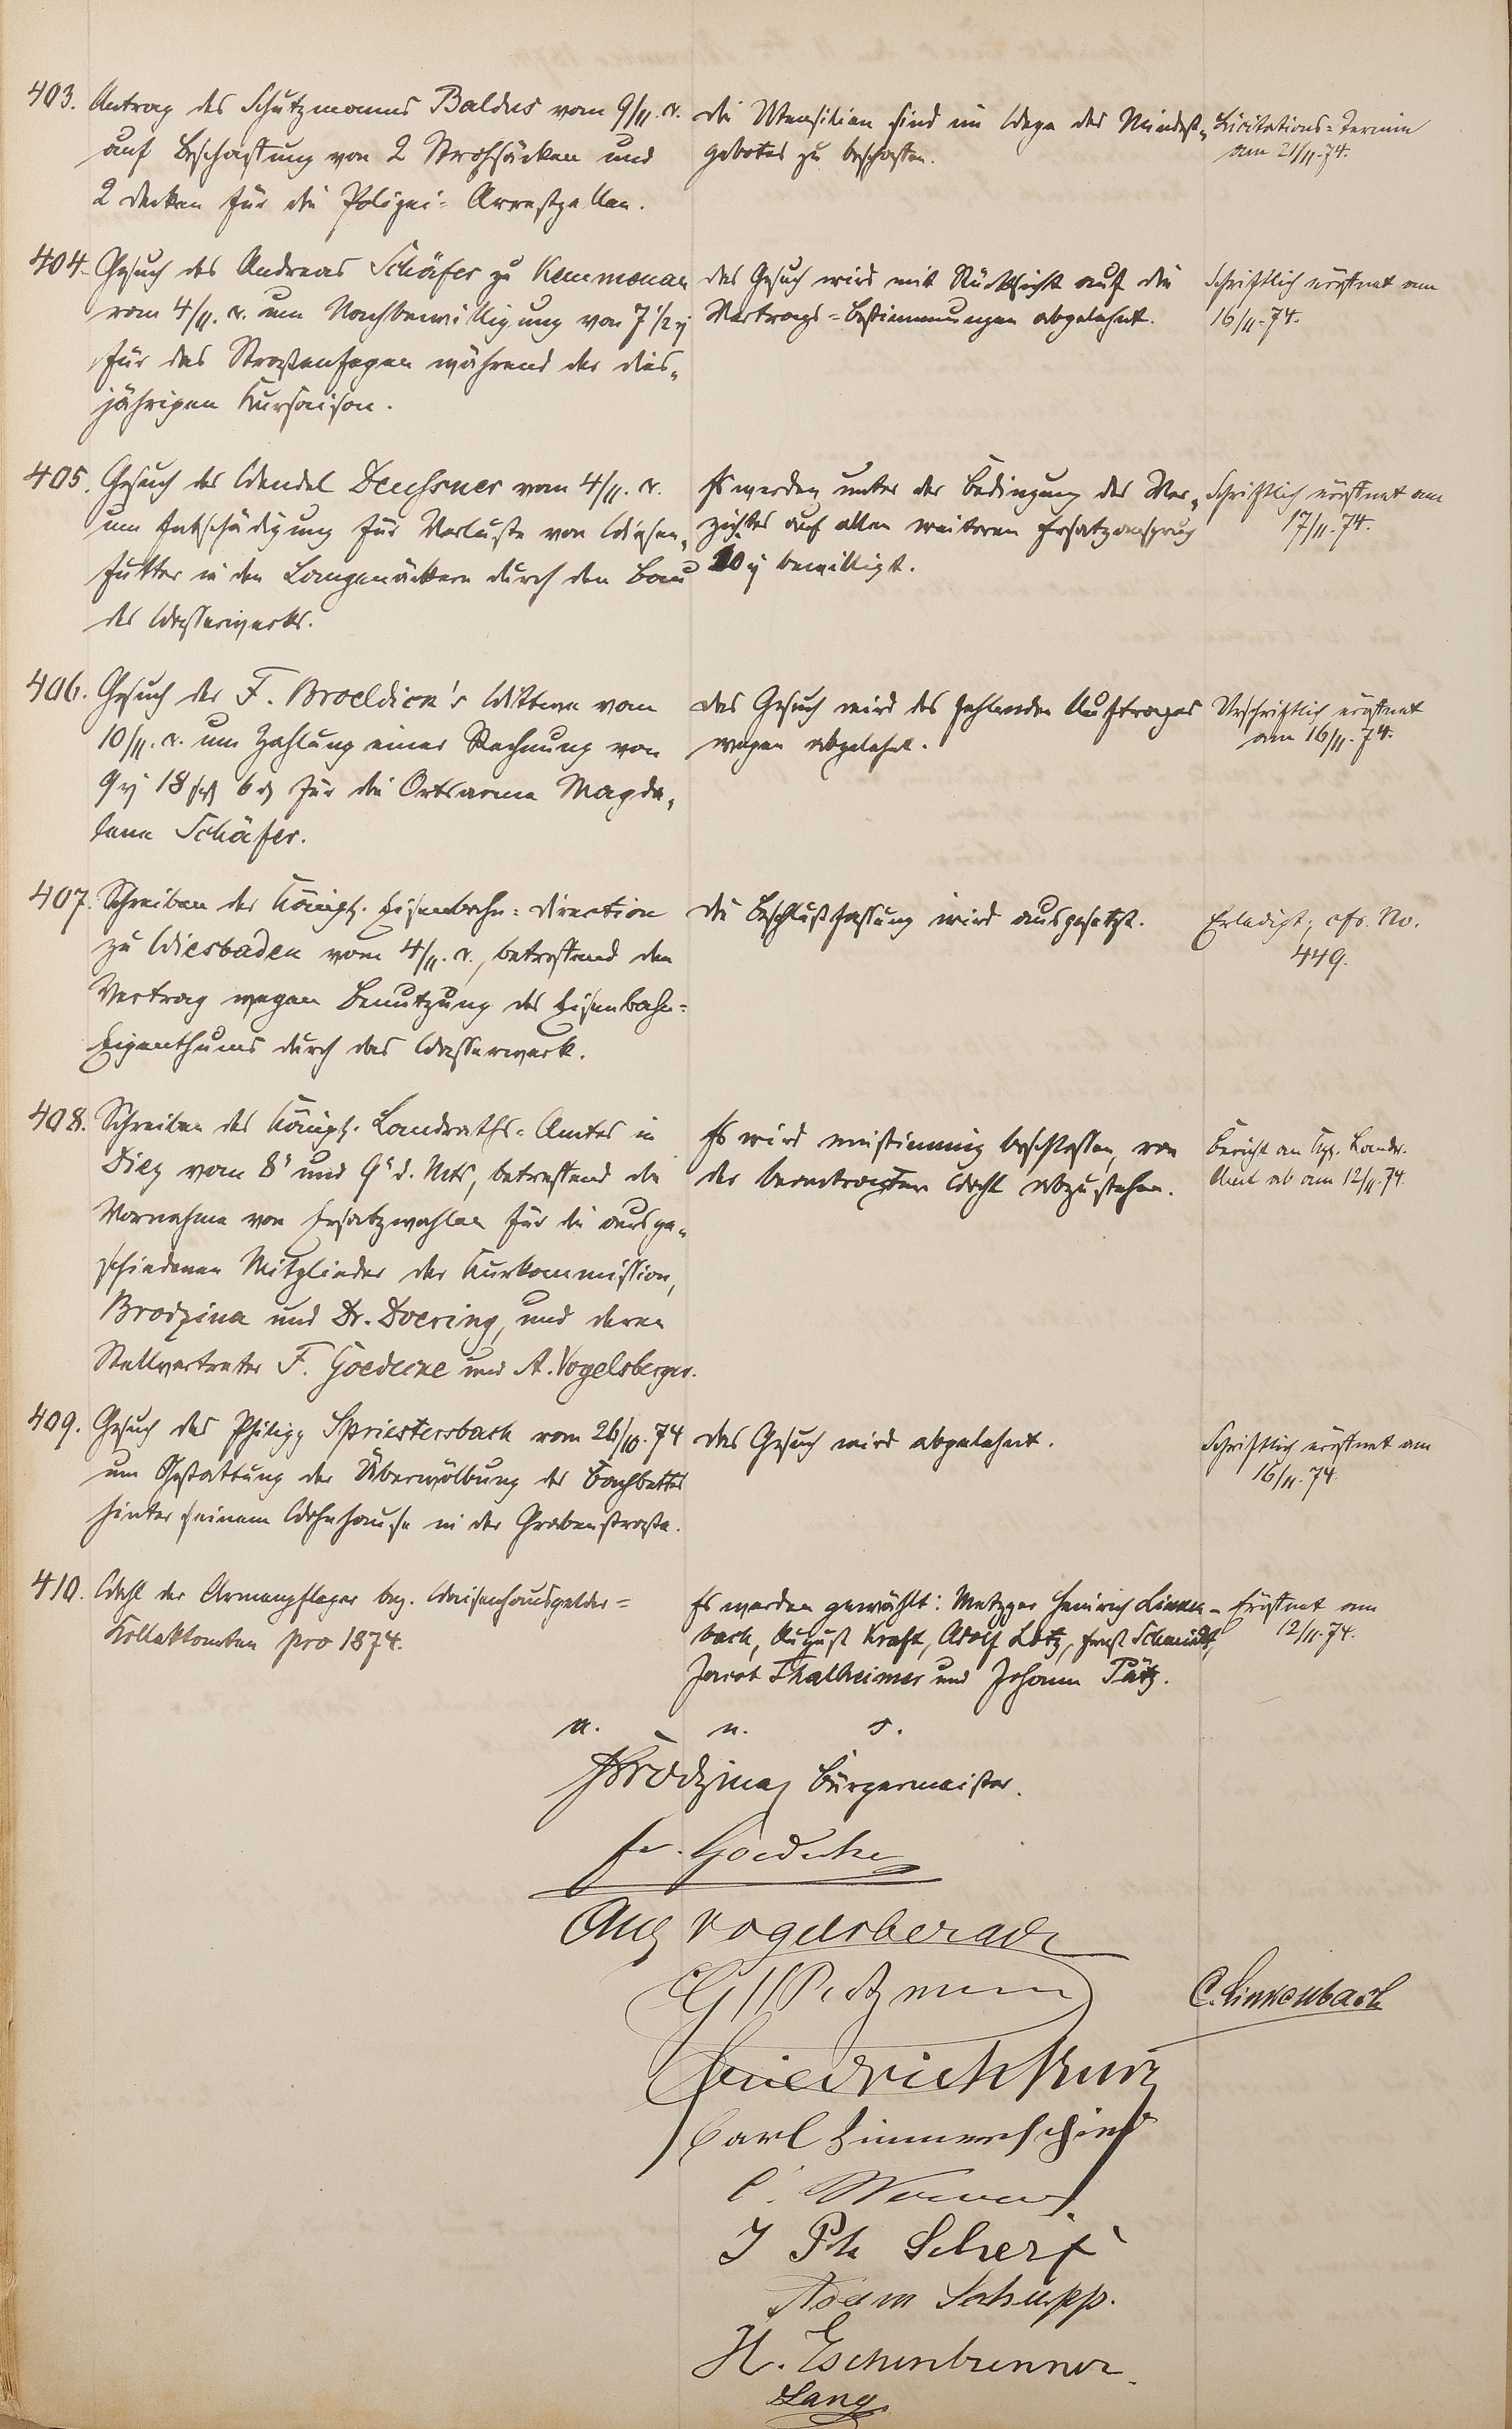 403. Antrag des Schutzmanns Baldus vom 9/11. cr.
auf Beschaffung von 2 Strohsäcken und
2 Decken für die Polizei-Arrestzellen.
Die Utensilien sind im Wege des Mindest-
gebotes zu beschaffen.
Licitations-Termin
am 21/11.74.
404. Gesuch des Andreas Schäfer zu Kemmenau
vom 4/11. cr. um Nachbewilligung von 7 1/2
für das Straßenfegen während der dies-
jährigen Kursaison.
Das Gesuch wird mit Rücksicht auf die
Vertrags-Bestimmungen abgelehnt.
Schriftlich eröffnet am
16/11.74.
405. Gesuch des Wendel Deusner vom 4/11. cr.
um Entschädigung für Verluste von Wiesen-
futter in den Langenäckern durch den Bau
des Wasserwerks.
Es werden unter der Bedingung des Ver-
zichtes auf allen weiteren Ersatzanspruch
10 bewilligt.
Schriftlich eröffnet am
17/11.74.
406. Gesuch der F. Broeldick's Wittwe vom
10/11. cr. um Zahlung einer Rechnung von
9 18 6 für die Ortsarme Magda-
lena Schäfer.
Das Gesuch wird des fehlenden Auftrages
wegen abgelehnt.
Urschriftlich eröffnet
am 16/11.74.
407. Schreiben der Königl. Eisenbahn-Direction
zu Wiesbaden vom 4/11. cr., betreffend den
Vertrag wegen Benutzung des Eisenbahn-
Eigenthums durch das Wasserwerk.
Die Beschlußfassung wird ausgesetzt.
Erledigt, cfr. No.
449.
408. Schreiben des Königl. Landraths-Amtes in
Diez vom 8' und 9' d. Mts, betreffend die
Vornahme von Ersatzwahlen für die ausge-
schiedenen Mitglieder der Kurkommission,
Brodzina und Dr. Doering, und deren
Stellvertreter F. Goedecke und A. Vogelsberger.
Es wird einstimmig beschlossen, von
der beantragten Wahl abzustehen.
Bericht an Kgl. Landr.
Amt ab am 12/11.74.
409. Gesuch des Philipp Spriestersbach vom 26/10.74
um Gestattung der Überwölbung des Bachbettes
hinter seinem Wohnhause in der Grabenstraße.
Das Gesuch wird abgelehnt.
Schriftlich eröffnet am
16/11.74.
410. Wahl der Armenpfleger bez. Waisenhausgelder-
Kollektanten pro 1874.
Es werden gewählt: Metzger Heinrich Linken-
bach, August Kraft, Adolf Lotz, Ernst Schmidt,
Jacob Thalheimer und Johann Pätz.
Eröffnet am
12/11.74.
u. u. s.
Brodzina, Bürgermeister.
Fr. Goedecke
Aug Vogelsberger
C. Linkenbach
Friedrich Kurz
Carl Zimmerschied
J Ph Scherf
Adam Schupp.
H. Eschenbrenner.
Lang